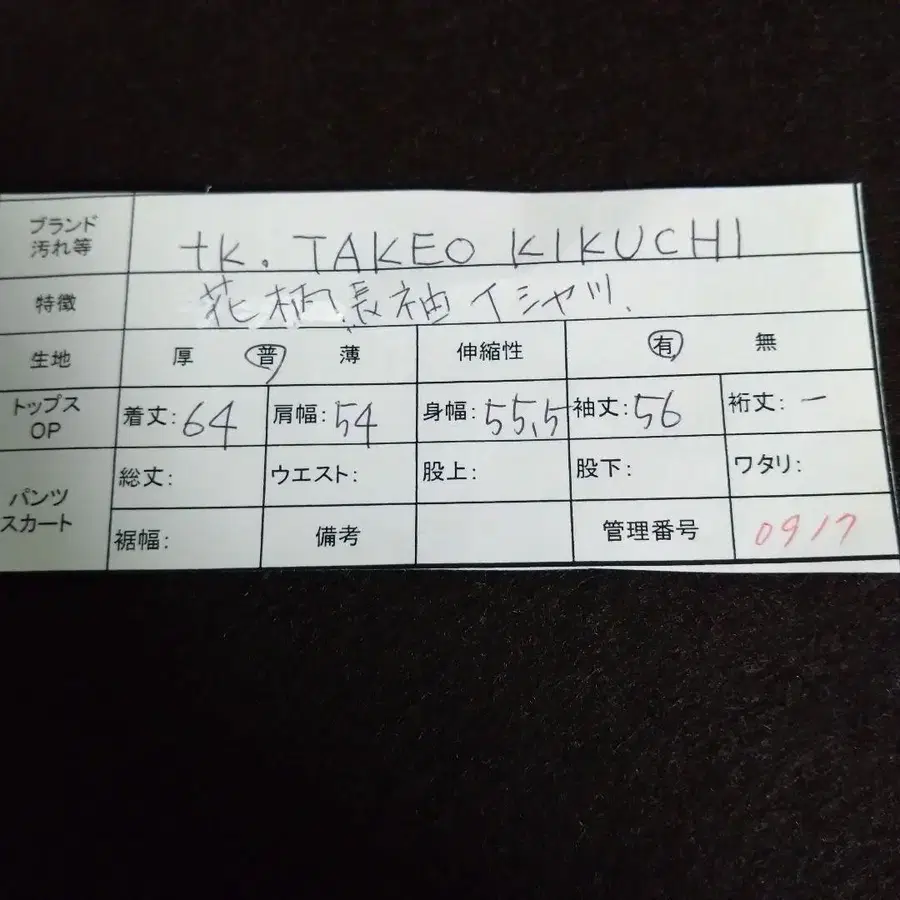 ブランド
汚れ等
tk. TAKEO KIKUCHI
特徴 花柄長袖イシャツ.
生地 厚 普 薄 伸縮性 有 無
トップス
OP
着丈: 64 肩幅: 54 身幅: 55,5 袖丈: 56 裄丈: ー
パンツ
スカート
総丈: ウエスト: 股上: 股下: ワタリ:
裾幅: 備考 管理番号 0917